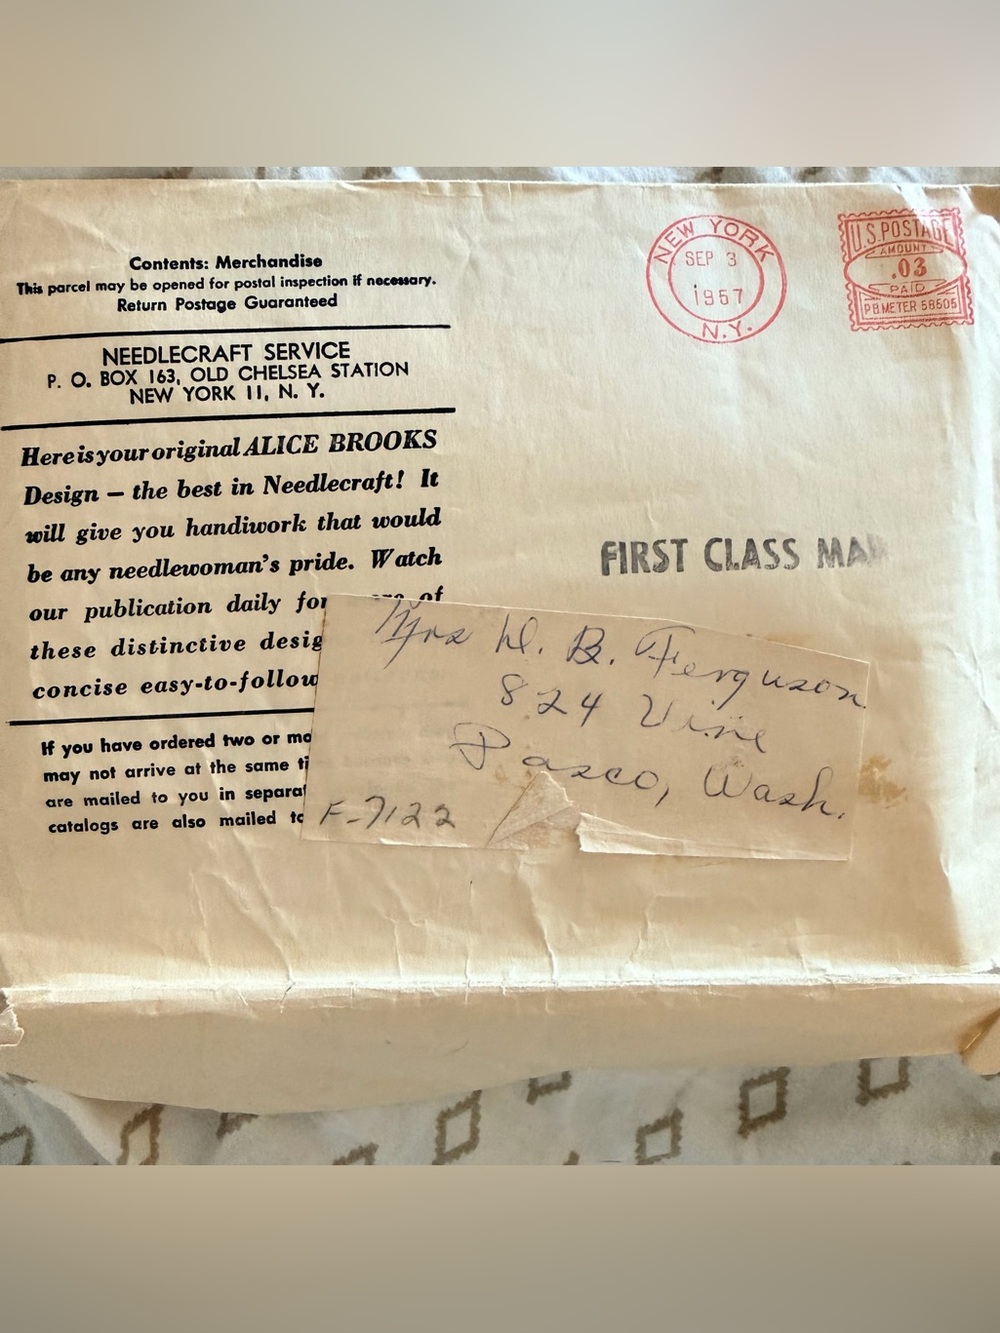 Contents: Merchandise
This parcel may be opened for postal inspection if necessary.
Return Postage Guaranteed
NEEDLECRAFT SERVICE
P. O. BOX 163, OLD CHELSEA STATION
NEW YORK 11, N. Y.
Here is your original ALICE BROOKS
Design — the best in Needlecraft! It
will give you handiwork that would
be any needlewoman's pride. Watch
our publication daily for of
these distinctive
concise
If you have ordered two or
may not arrive at the same
are mailed to you in
catalogs are also mailed
NEW YORK
SEP 3
1957
N.Y.
U.S. POSTAGE
AMOUNT
.03
PAID
P.B. METER 58505
FIRST CLASS
Mrs B. Ferguson
824 Vine
Pasco, Wash.
F-7122